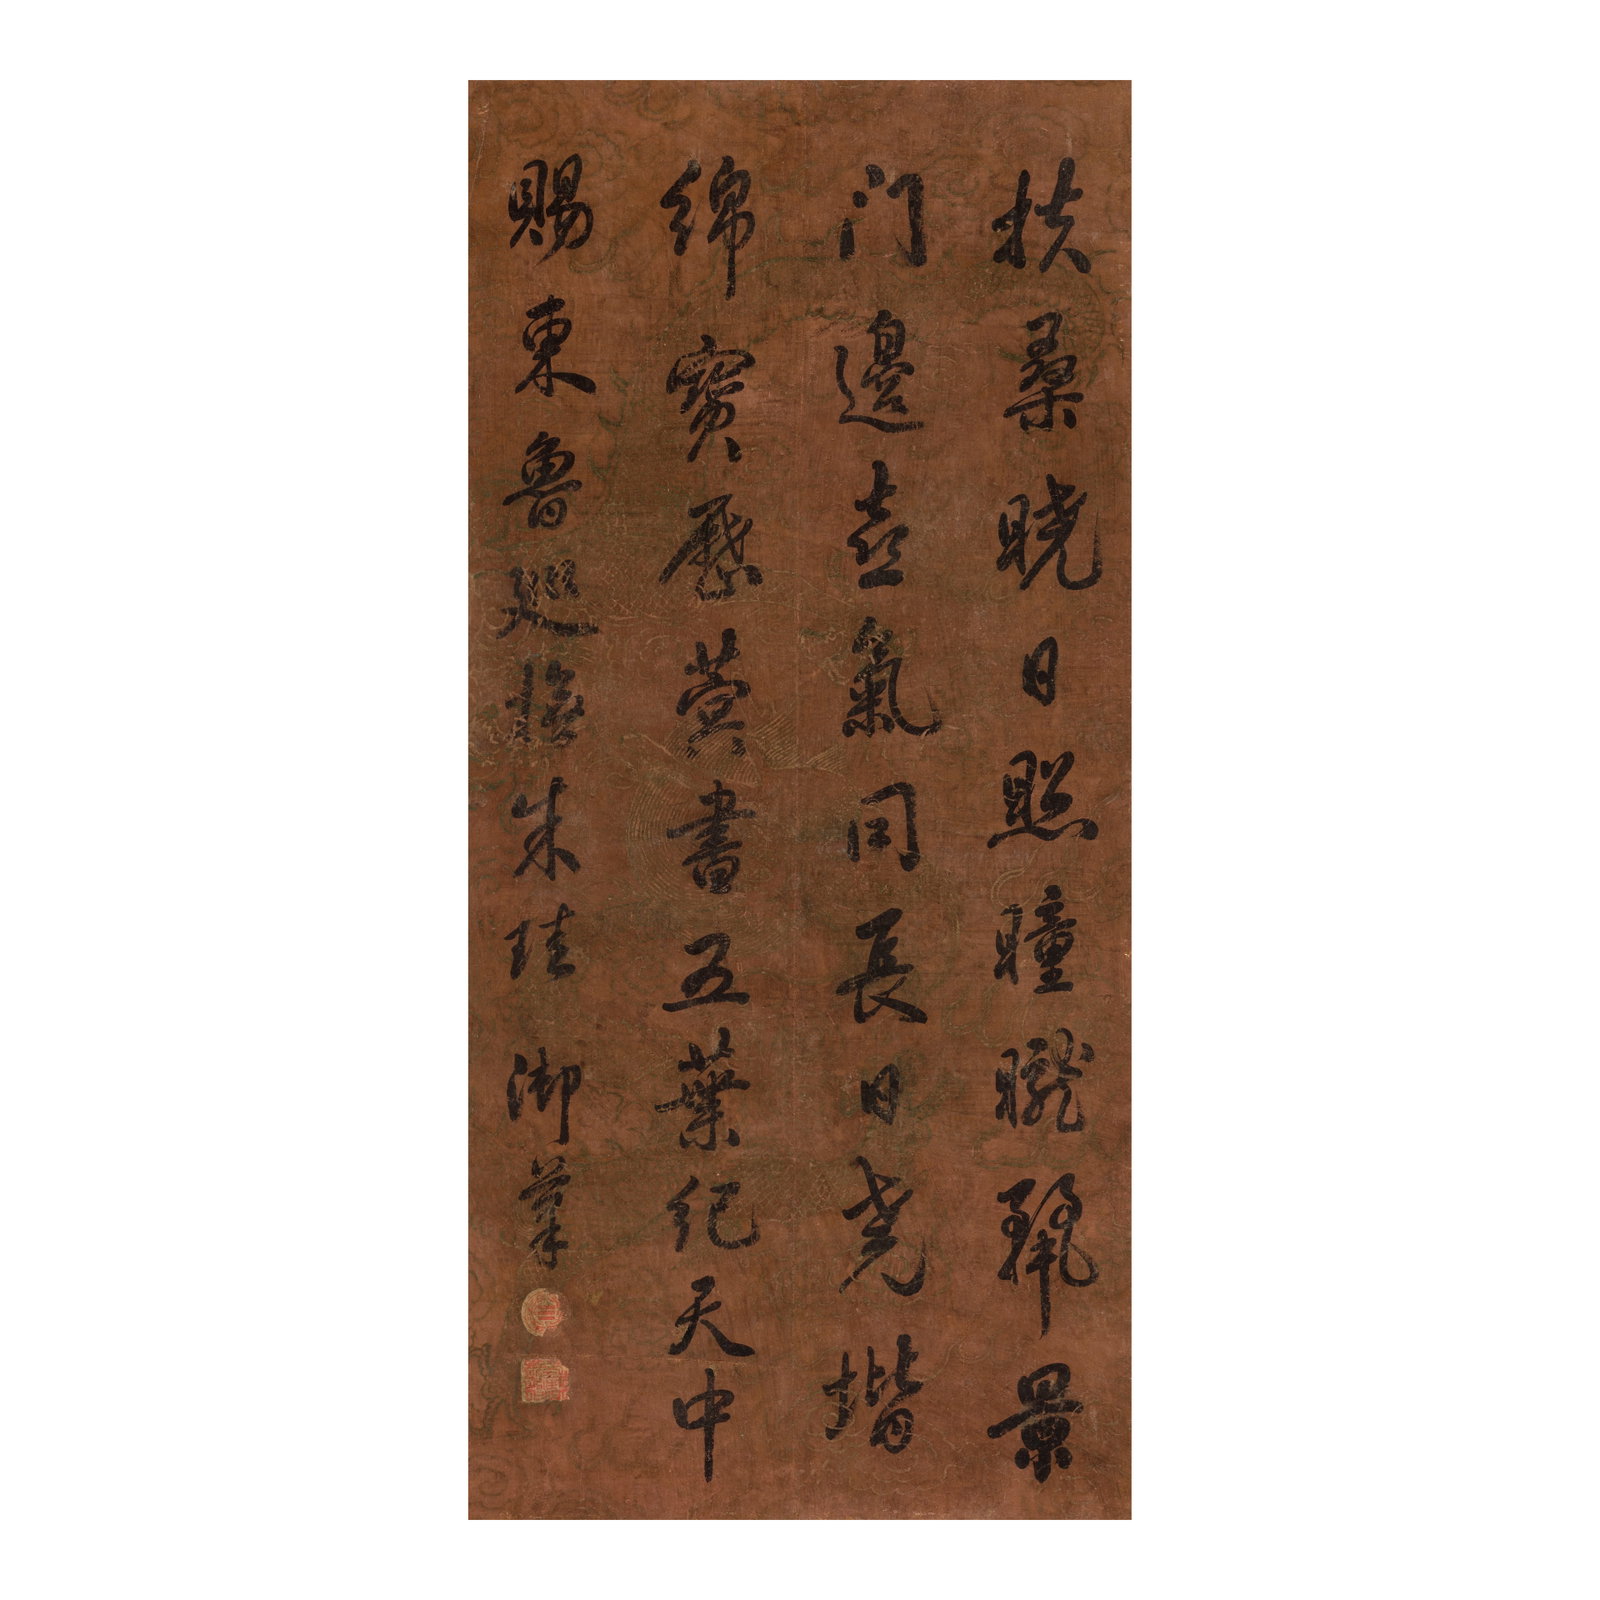 扶桑曉日照曈曨麗景
門邊喜氣同長日堯堦
綿寶曆蓂書五葉紀天中
賜東魯廵撫朱珪 御筆